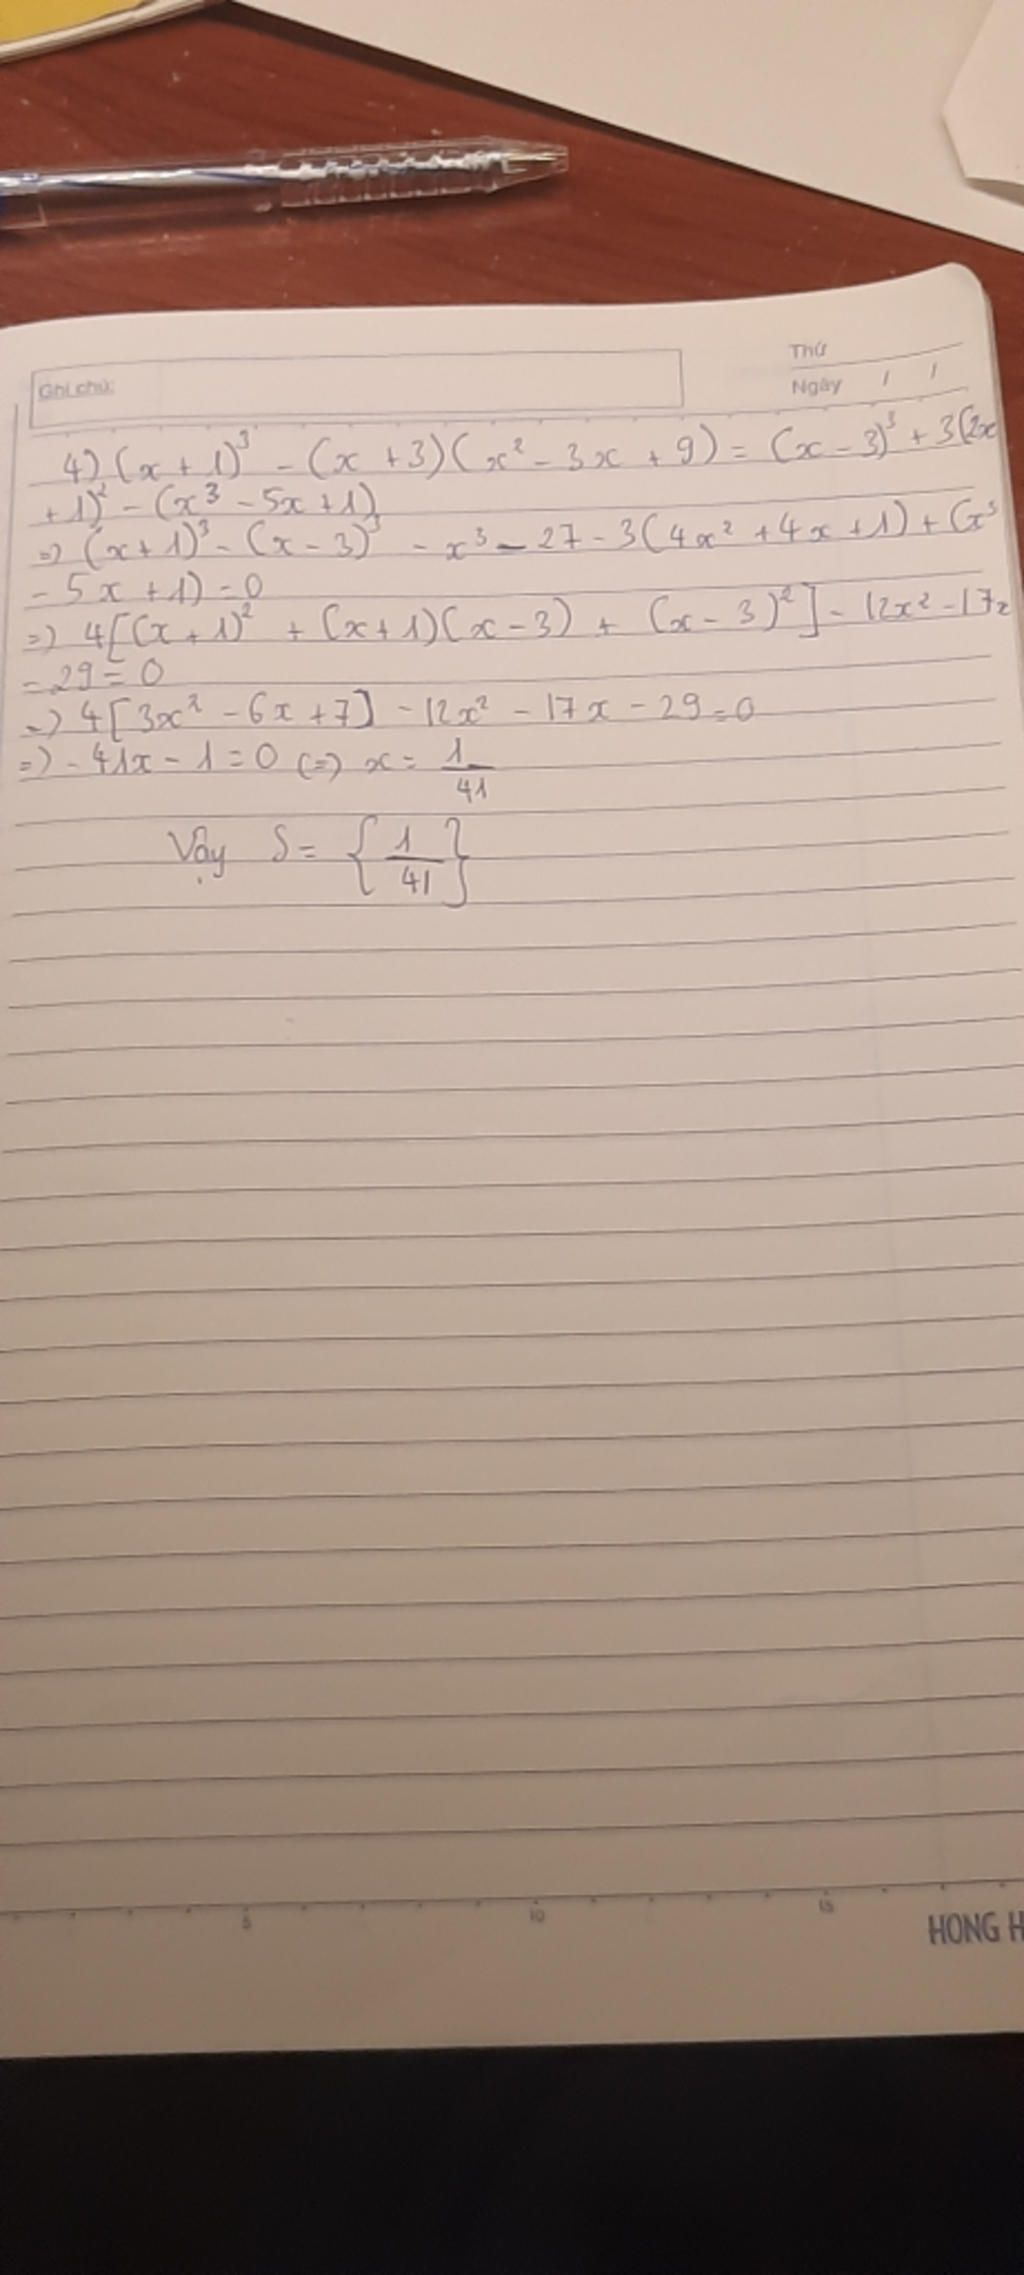 Thứ
Ghi chú:
Ngày / /
4) (x + 1)³ - (x + 3)(x² - 3x + 9) = (x - 3)³ + 3(2x
+ 1)² - (x³ - 5x + 1)
=> (x + 1)³ - (x - 3)³ - x³ - 27 - 3(4x² + 4x + 1) + (x³
- 5x + 1) = 0
=> 4[(x + 1)² + (x + 1)(x - 3) + (x - 3)²] - 12x² - 17x
- 29 = 0
=> 4[3x² - 6x + 7] - 12x² - 17x - 29 = 0
=> - 41x - 1 = 0 <=> x = 1/41
Vậy S = {1/41}
5 10 15
HONG H